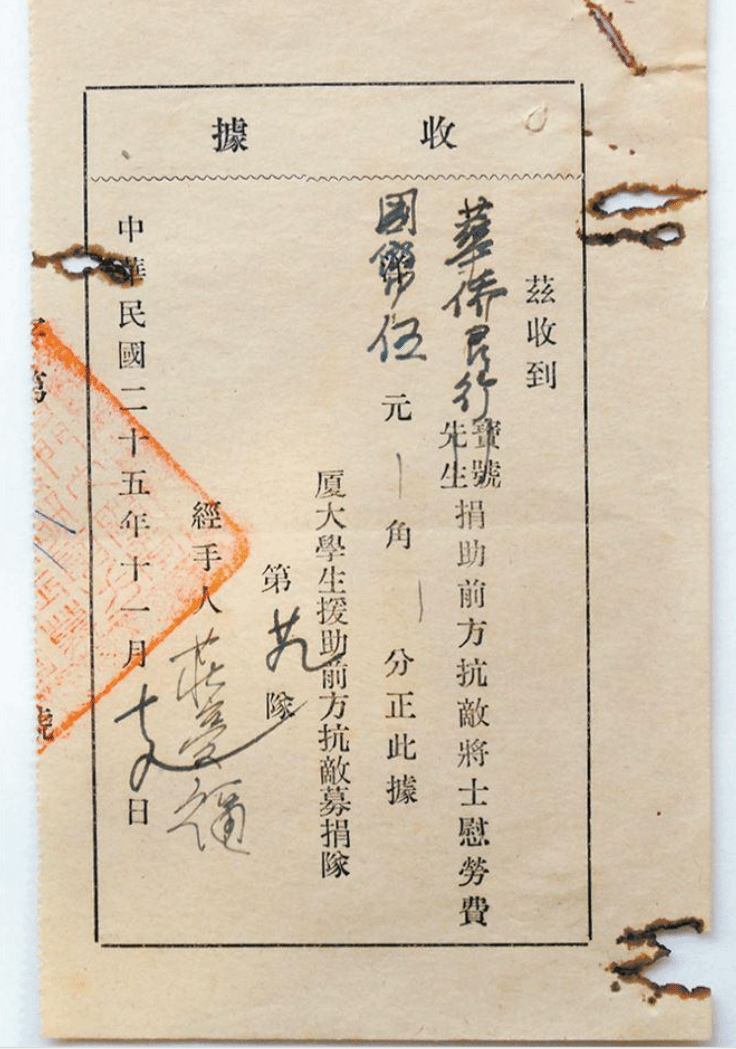 收據
茲收到
華僑銀行寶號先生捐助前方抗敵將士慰勞費
國幣伍元角分正此據
厦大學生援助前方抗敵募捐隊
第隊
經手人莊
中華民國二十五年十一月日
字第號